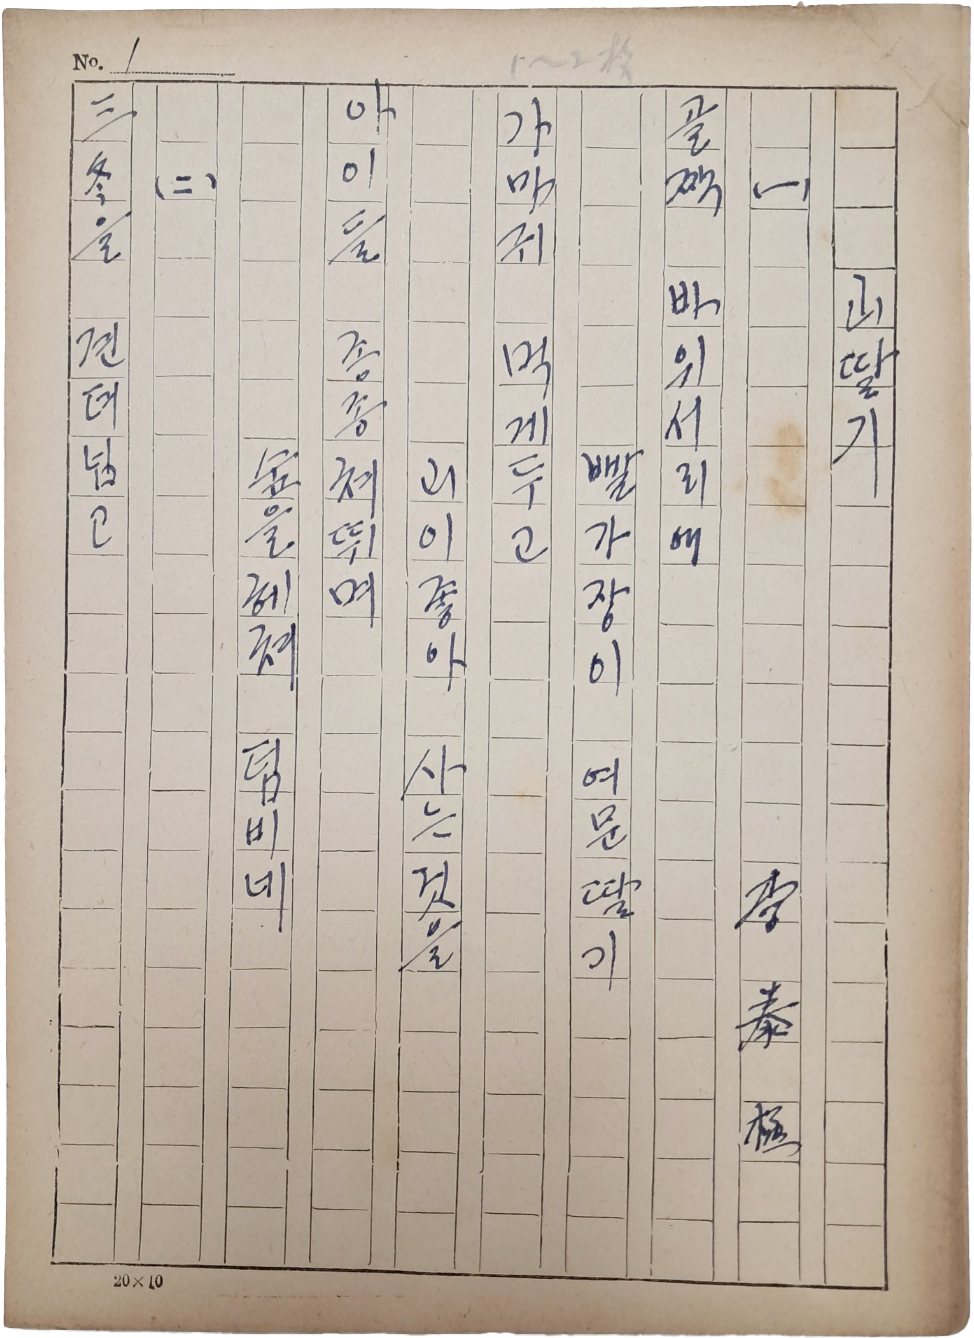 No. 1
괴딸기
(一) 李泰極
골짝 바위서리에
빨가장이 여문딸기
가마귀 먹게두고
괴이좋아 사는것을
아이들 종종쳐뛰며
숲을헤쳐 덤비네
(二)
三冬을 견뎌넘고
20×10